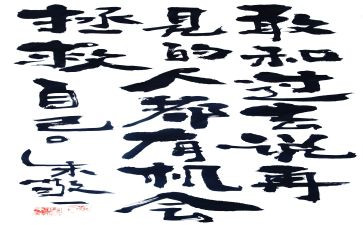 敢和过去说再
见的人都有机会
拯救自己。